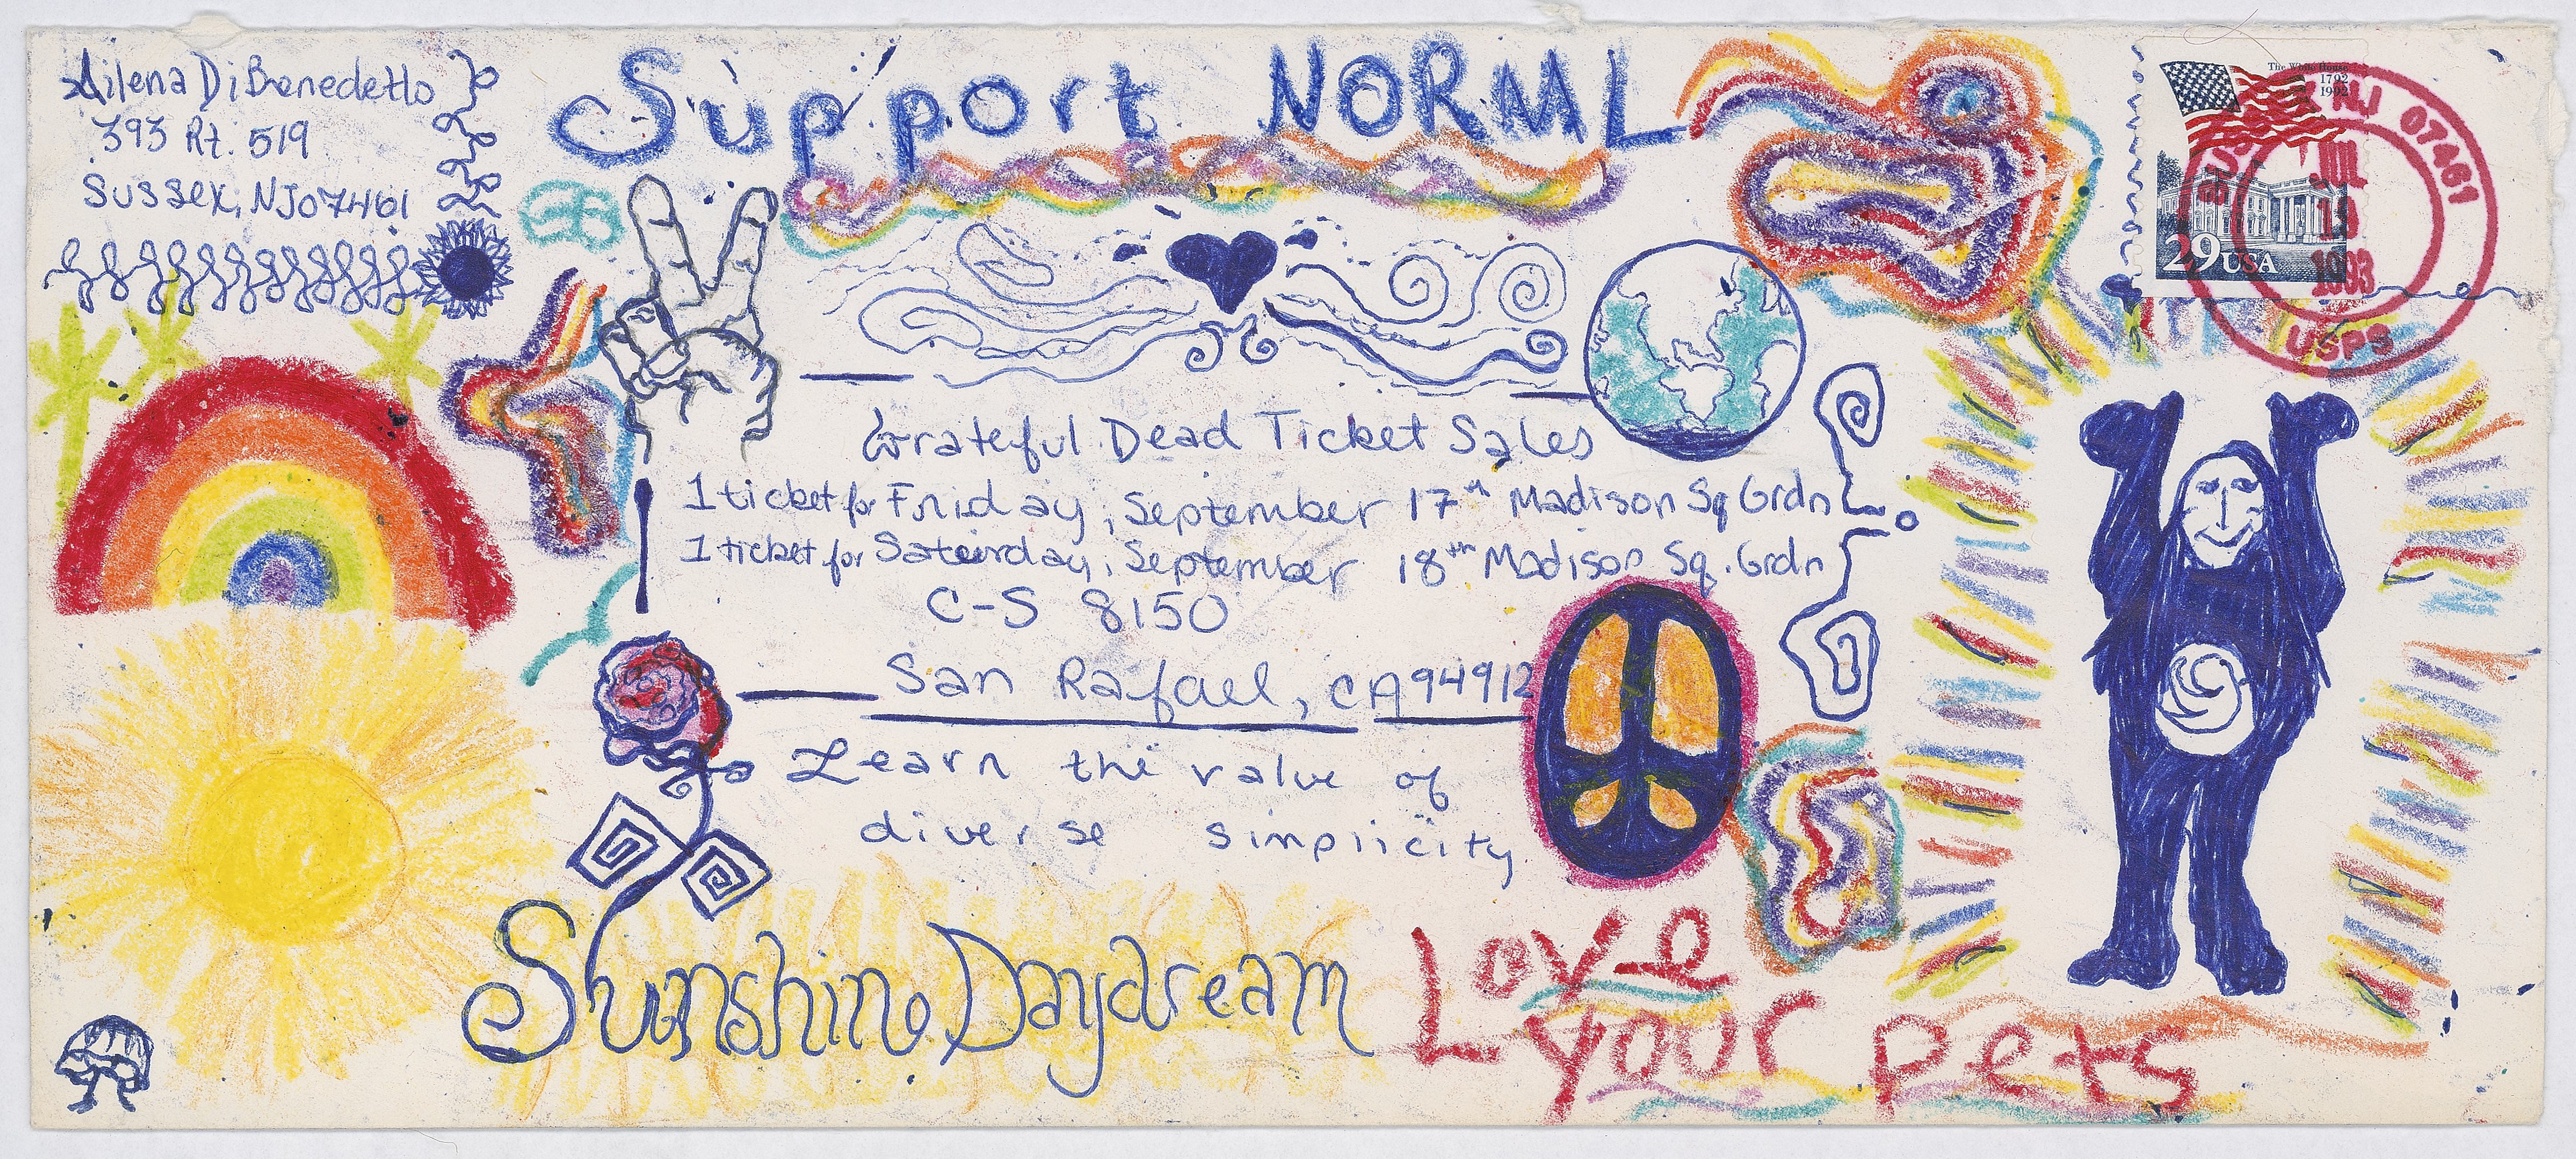 Ailena DiBenedetto
393 Rt. 519
Sussex, NJ 07461
Support NORML
The White House
1792
1992
29 USA
NJ 07461
JUL
1993
USPS
Grateful Dead Ticket Sales
1 ticket for Friday, September 17th Madison Sq Grdn
1 ticket for Saturday, September 18th Madison Sq. Grdn
C-S 8150
San Rafael, CA 94912
Learn the value of
diverse simplicity
Sunshine Daydream
Love
your pets